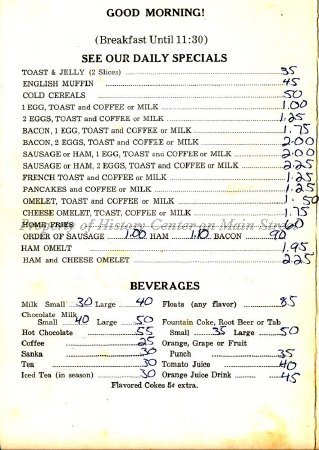 GOOD MORNING!
(Breakfast Until 11:30)
SEE OUR DAILY SPECIALS
TOAST & JELLY (2 Slices) 35
ENGLISH MUFFIN 45
COLD CEREALS 50
1 EGG, TOAST and COFFEE or MILK 1.00
2 EGGS, TOAST and COFFEE or MILK 1.25
BACON, 1 EGG, TOAST and COFFEE or MILK 1.75
BACON, 2 EGGS, TOAST and COFFEE or MILK 2.00
SAUSAGE or HAM, 1 EGG, TOAST and COFFEE or MILK 2.00
SAUSAGE or HAM, 2 EGGS, TOAST and COFFEE or MILK 2.25
FRENCH TOAST and COFFEE or MILK 1.25
PANCAKES and COFFEE or MILK 1.25
OMELET, TOAST and COFFEE or MILK 1.50
CHEESE OMELET, TOAST, COFFEE or MILK 1.75
HOME FRIES 60
Property of History Center on Main Street
ORDER OF SAUSAGE 1.00 HAM 1.10 BACON 90
HAM OMELT 1.95
HAM and CHEESE OMELET 2.25
BEVERAGES
Milk Small 30 Large 40
Chocolate Milk
Small 40 Large 50
Hot Chocolate 55
Coffee 25
Sanka 30
Tea 30
Iced Tea (in season) 30
Floats (any flavor) 85
Fountain Coke, Root Beer or Tab
Small 35 Large 50
Orange, Grape or Fruit
Punch 35
Tomato Juice 40
Orange Juice Drink 45
Flavored Cokes 5¢ extra.